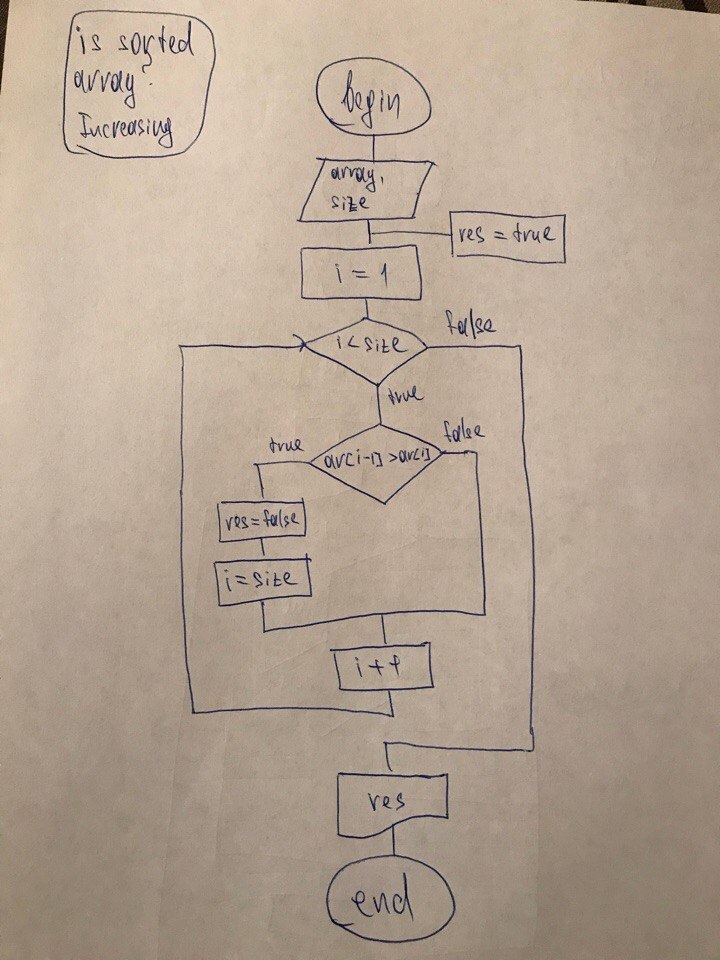 is sorted
array?
Increasing
begin
array,
size
res = true
i = 1
i < size
false
true
ar[i-1] > ar[i]
true
false
res = false
i = size
i++
res
end